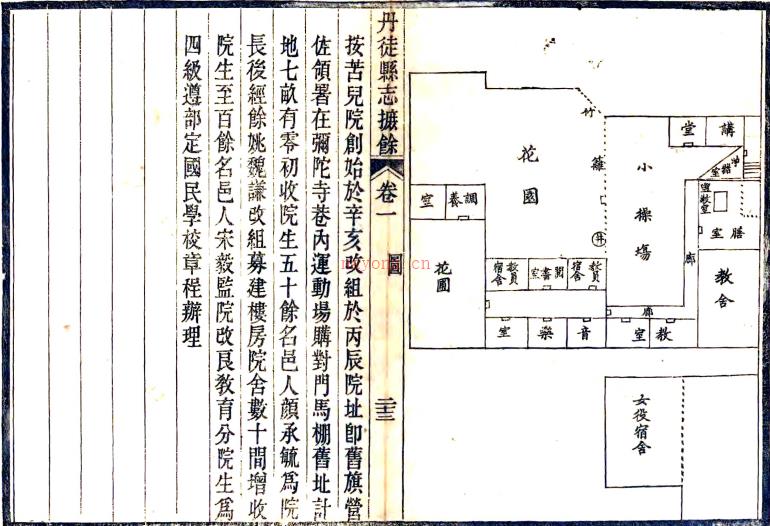 講
堂
小操場
竹籬
花園
井
調養
室
花園
膳
室
教室
廊
教舍
教員宿舍
閱書室
教員宿舍
廊
教
室
音
樂
室
女役宿舍
丹徒縣志摭餘
卷一
圖
二十三
按苦兒院創始於辛亥改組於丙辰院址卽舊旗營
佐領署在彌陀寺巷內運動場購對門馬棚舊址計
地七畝有零初收院生五十餘名邑人顏承毓爲院
長後經餘姚魏謙改組募建樓房院舍數十間增收
院生至百餘名邑人宋毅監院改良敎育分院生爲
四級遵部定國民學校章程辦理
myyong.cn